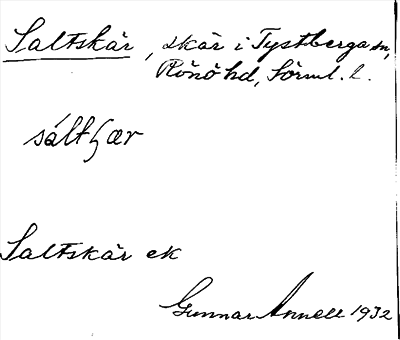 Saltskär, skär i Tystberga sn,
Rönö hd, Sörml. l.
sáltʃær
Saltskär ek
Gunnar Annell 1932